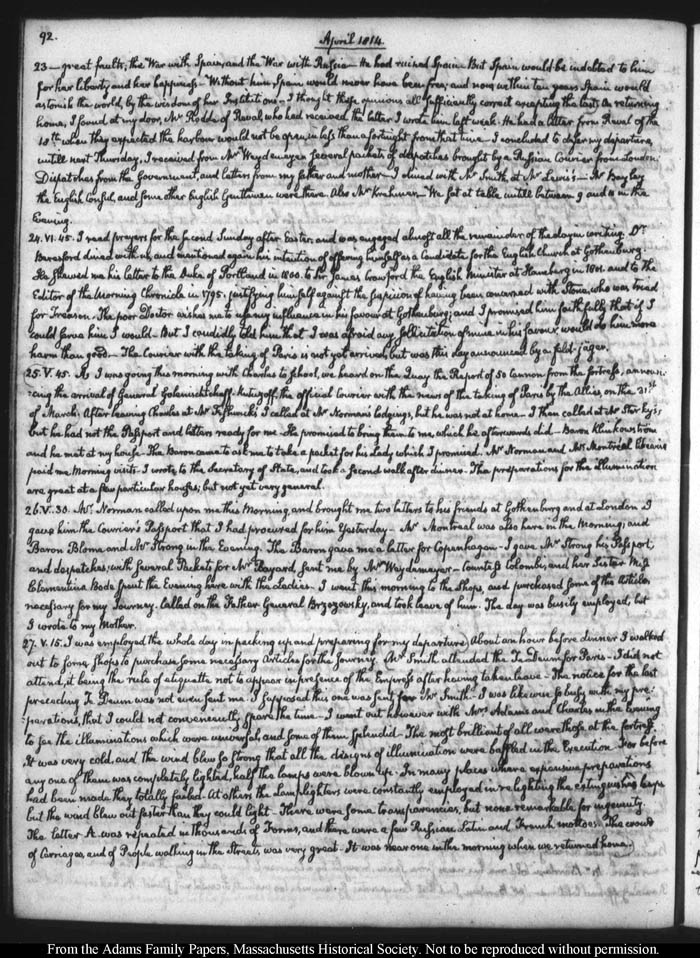 92.
April 1814.
23 — great faults; the War with Spain, and the War with Russia — He had ruined Spain. But Spain would be indebted to him
for her liberty and her happiness — Without him Spain would never have been free; and now within ten years Spain would
astonish the world, by the wisdom of her Institutions — I thought these opinions all sufficiently correct excepting the last. On returning
home, I found at my door, Mr Rodde of Reval, who had received the letter I wrote him last week. He had a letter from Reval of the
10th when they expected the harbour would not be open in less than a fortnight from that time — I concluded to defer my departure,
untill next Thursday. I received from Mr Weydemeyer several packets of despatches brought by a Russian Courier from London.
Dispatches from the Government, and letters from my father and mother — I dined with Mr Smith at Mr Lewis's — Mr Bayley
the English Consul, and some other English Gentlemen were there. Also Mr Krehmer — We sat at table untill between 9 and 10 in the
Evening.
24. VI. 45. I read prayers for the second Sunday after Easter, and was engaged almost all the remainder of the day in writing. Dr
Beresford dined with us, and mentioned again his intention of offering himself as a Candidate for the English Church at Gothenburg.
He shewed me his letter to the Duke of Portland in 1800. to Sir James Crawford the English Minister at Hamburg in 1801. and to the
Editor of the Morning Chronicle in 1795. justifying himself against the suspicion of having been concerned with Stone, who was tried
for Treason. The poor Doctor wishes me to use my influence in his favour at Gothenburg; and I promised him faithfully that if I
could serve him I would. But I candidly told him that I was afraid any sollicitation of mine in his favour would do him more
harm than good. — The Courier with the taking of Paris is not yet arrived, but was this day announced by a feld-jäger.
25. V. 45. As I was going this morning with Charles to School, we heard on the Quay the Report of 50 Cannon from the fortress, announ-
cing the arrival of General Golenischtcheff-Kutuzoff, the official Courier with the news of the taking of Paris by the Allies, on the 31st
of March. After leaving Charles at Mr I called at Mr Norman's lodgings, but he was not at home — I then called at
but he had not the Passport and letters ready for me. He promised to bring them to me, which he afterwards did — Baron Klinkowström
and he met at my house. The Baron came to ask me to take a packet for his Lady which I promised. Mr Norman and Mr Montréal likewise
paid me Morning visits. I wrote to the Secretary of State, and took a second walk after dinner. The preparations for the illumination
are great at a few particular houses; but not yet very general.
26. V. 30. Mr Norman called upon me this Morning, and brought me two letters to his friends at Gothenburg and at London. I
gave him the Courier's Passport that I had procured for him Yesterday — Mr Montreal was also here in the Morning; and
Baron Blome and Mr Strong in the Evening. The Baron gave me a letter for Copenhagen — I gave Mr Strong his Passport,
and despatches; with several Packets for Mr Bayard, sent me by Mr Weydemeyer — Countess Colombi, and her Sister Miss
Clementina Bode spent the Evening here with the Ladies. I went this morning to the Shops, and purchased some of the Articles
necessary for my Journey. Called on the Father General Brzozowsky, and took leave of him. The day was busily employed, but
I wrote to my Mother.
27. V. 15. I was employed the whole day in packing up and preparing for my departure. About an hour before dinner I walked
out to some Shops to purchase some necessary Articles for the Journey. Mr Smith attended the Te-Deum for Paris — I did not
attend, it being the rule of etiquette not to appear in presence of the Empress after having taken leave — The notice for the last
preceding Te Deum was not even sent me. I supposed this one was sent for Mr Smith — I was likewise so busy with my pre-
parations, that I could not conveniently spare the time — I went out however with Mrs Adams and Charles in the Evening
to see the illuminations which were universal, and some of them splendid — The most brilliant of all were those at the fortress.
It was very cold, and the wind blew so strong that all the designs of illumination were baffled in the Execution. For before
any one of them was completely lighted, half the lamps were blown up. In many places where expensive preparations
had been made they totally failed. At others the Lamplighters were constantly employed in re lighting the extinguished lamps
but the wind blew out faster than they could light — There were some transparencies, but none remarkable for ingenuity.
The letter A. was repeated in thousands of Forms, and there were a few Russian, Latin and French mottoes. The crowd
of Carriages, and of People walking in the streets, was very great — It was near one in the morning when we returned home.
From the Adams Family Papers, Massachusetts Historical Society. Not to be reproduced without permission.